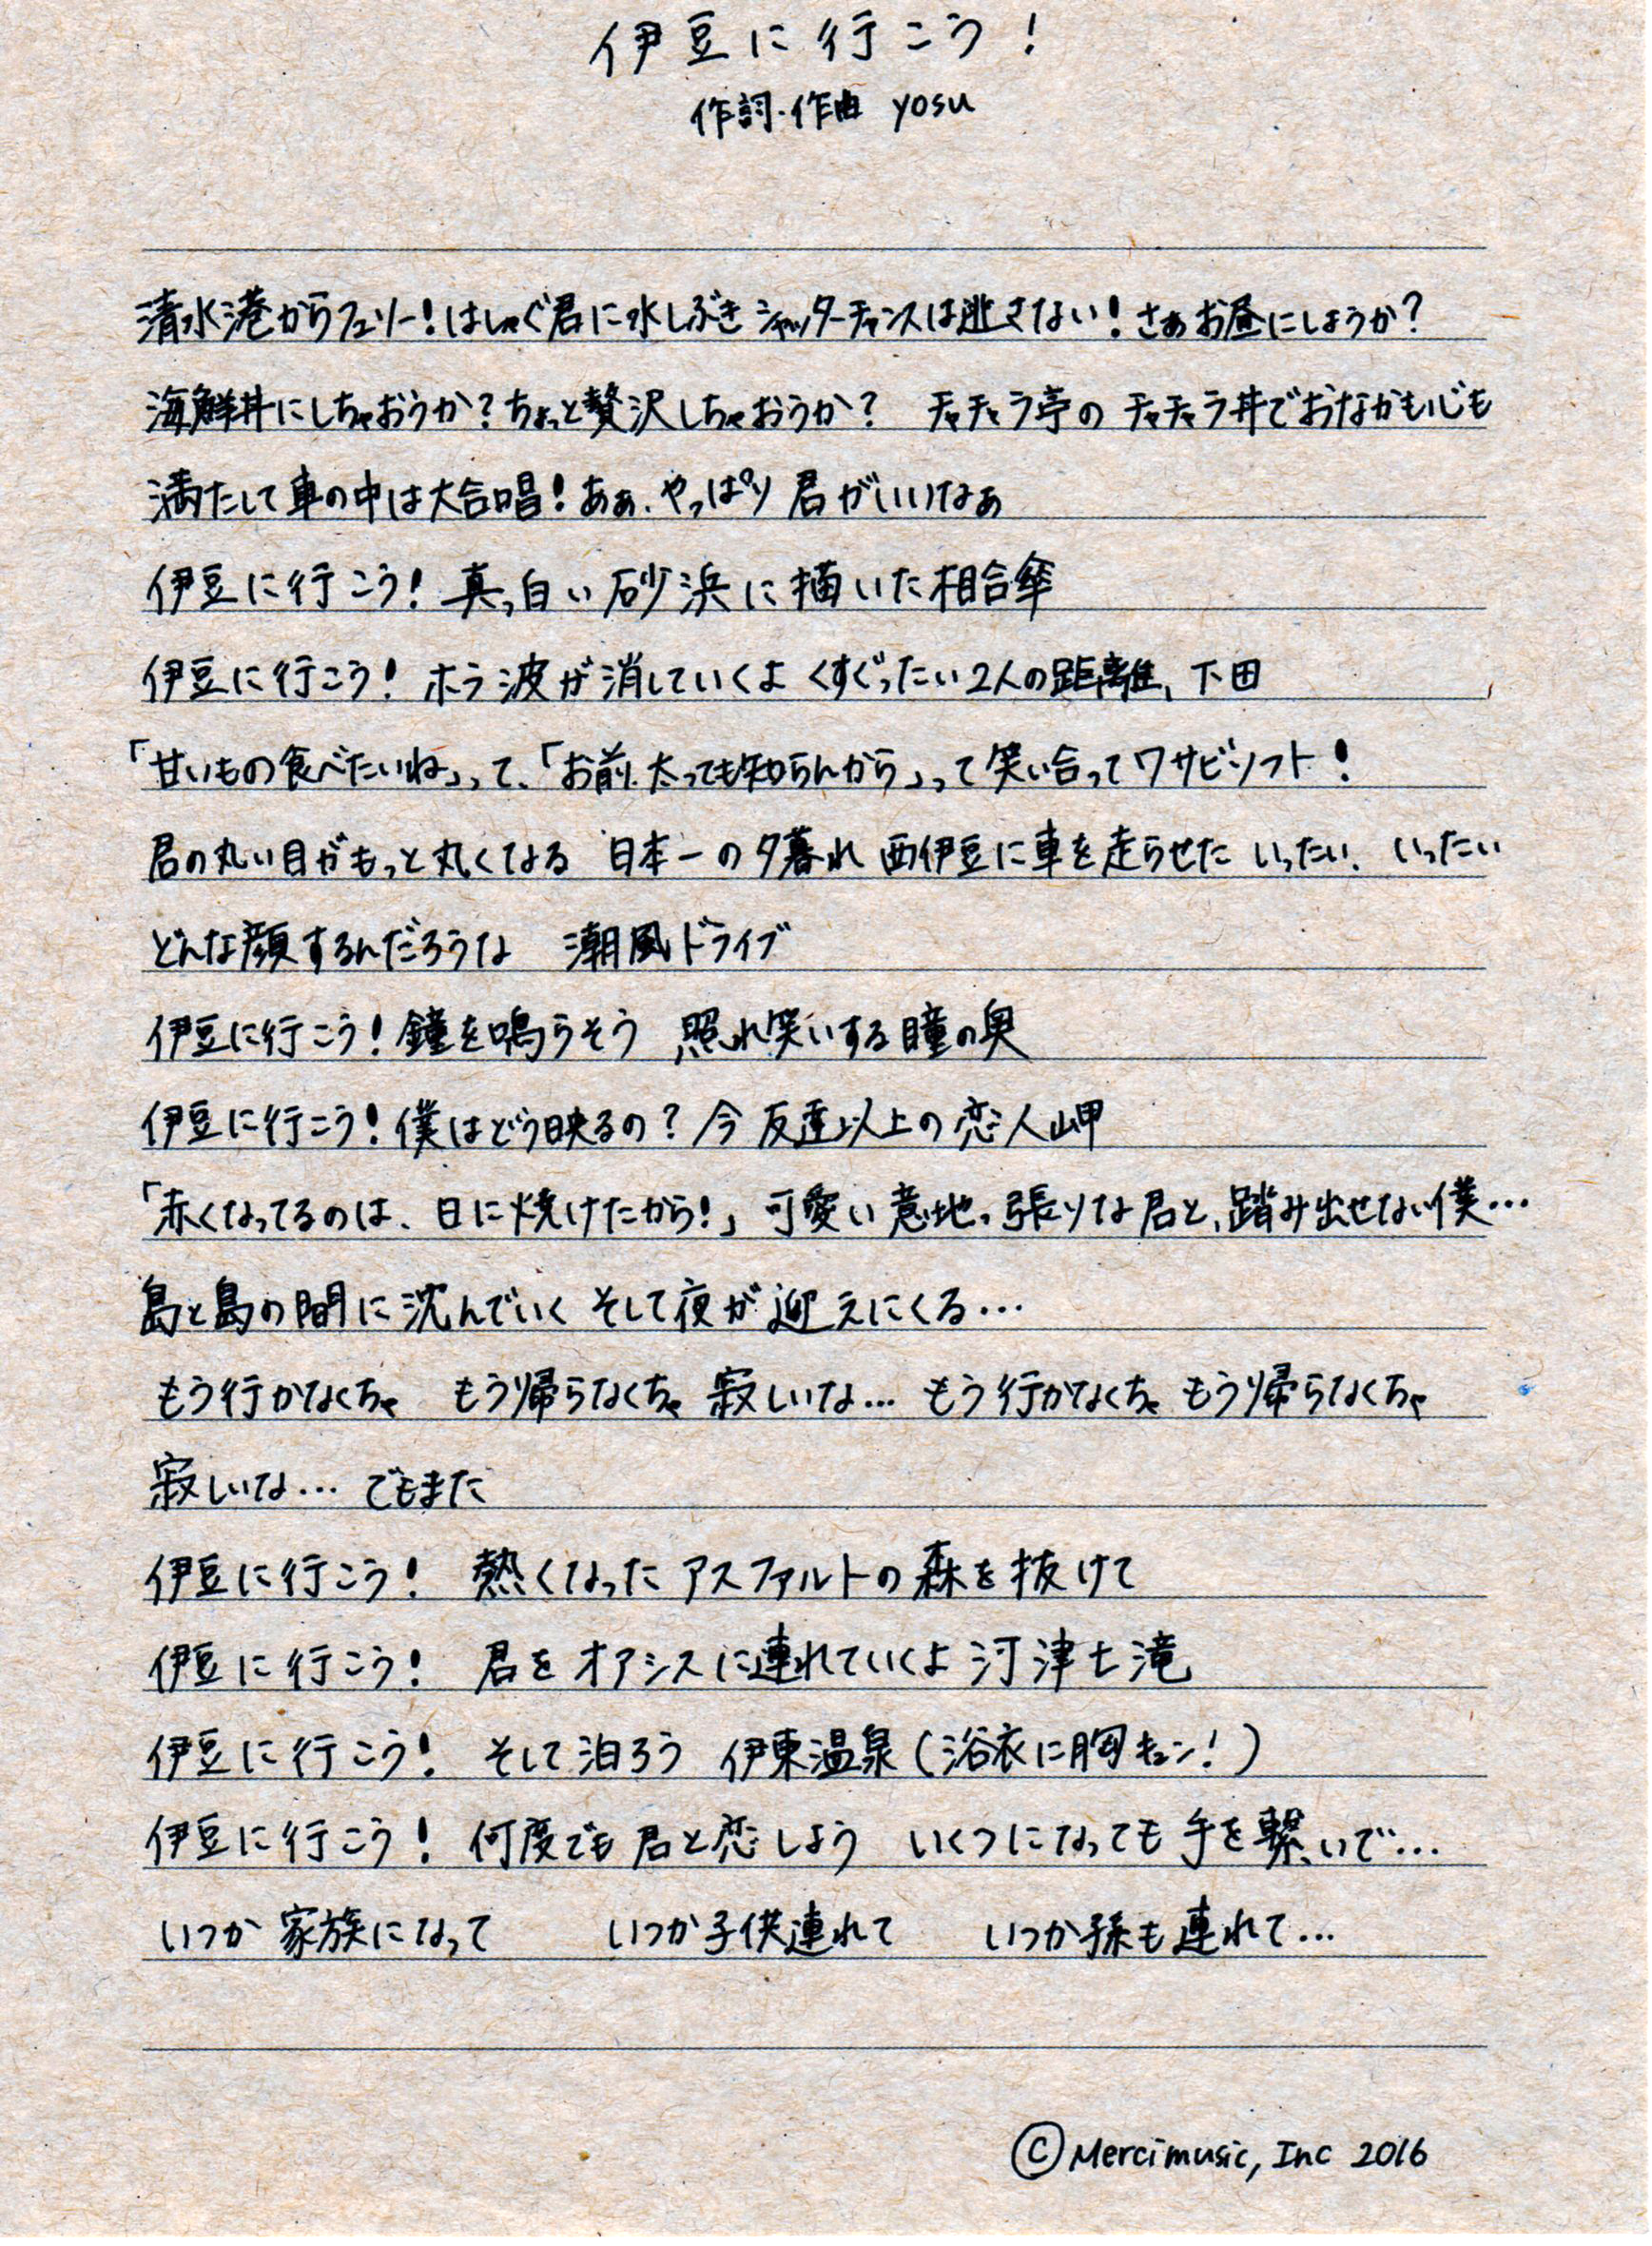 伊豆に行こう！
作詞・作曲 yosu
清水港からフェリー！はしゃぐ君に水しぶき シャッターチャンスは逃さない！さぁお昼にしようか？
海鮮丼にしちゃおうか？ちょっと贅沢しちゃおうか？ チャチャラ亭の チャチャラ丼でおなかも心も
満たして車の中は大合唱！あぁ、やっぱり君がいいなぁ
伊豆に行こう！真っ白い砂浜に描いた相合傘
伊豆に行こう！ホラ波が消していくよ くすぐったい2人の距離、下田
「甘いもの食べたいね」って、「お前、太っても知らんから」って笑い合ってワサビソフト！
君の丸い目がもっと丸くなる 日本一の夕暮れ 西伊豆に車を走らせた いったい、いったい
どんな顔するんだろうな 潮風ドライブ
伊豆に行こう！鐘を鳴らそう 照れ笑いする瞳の奥
伊豆に行こう！僕はどう映るの？今 友達以上の恋人岬
「赤くなってるのは、日に焼けたから！」可愛い意地っ張りな君と、踏み出せない僕…
島と島の間に沈んでいく そして夜が迎えにくる…
もう行かなくちゃ もう帰らなくちゃ 寂しいな… もう行かなくちゃ もう帰らなくちゃ
寂しいな… でもまた
伊豆に行こう！ 熱くなったアスファルトの森を抜けて
伊豆に行こう！ 君をオアシスに連れていくよ 河津七滝
伊豆に行こう！ そして泊ろう 伊東温泉（浴衣に胸キュン！）
伊豆に行こう！ 何度でも君と恋しよう いくつになっても手を繋いで…
いつか家族になって いつか子供連れて いつか孫も連れて…
©Mercimusic, Inc 2016